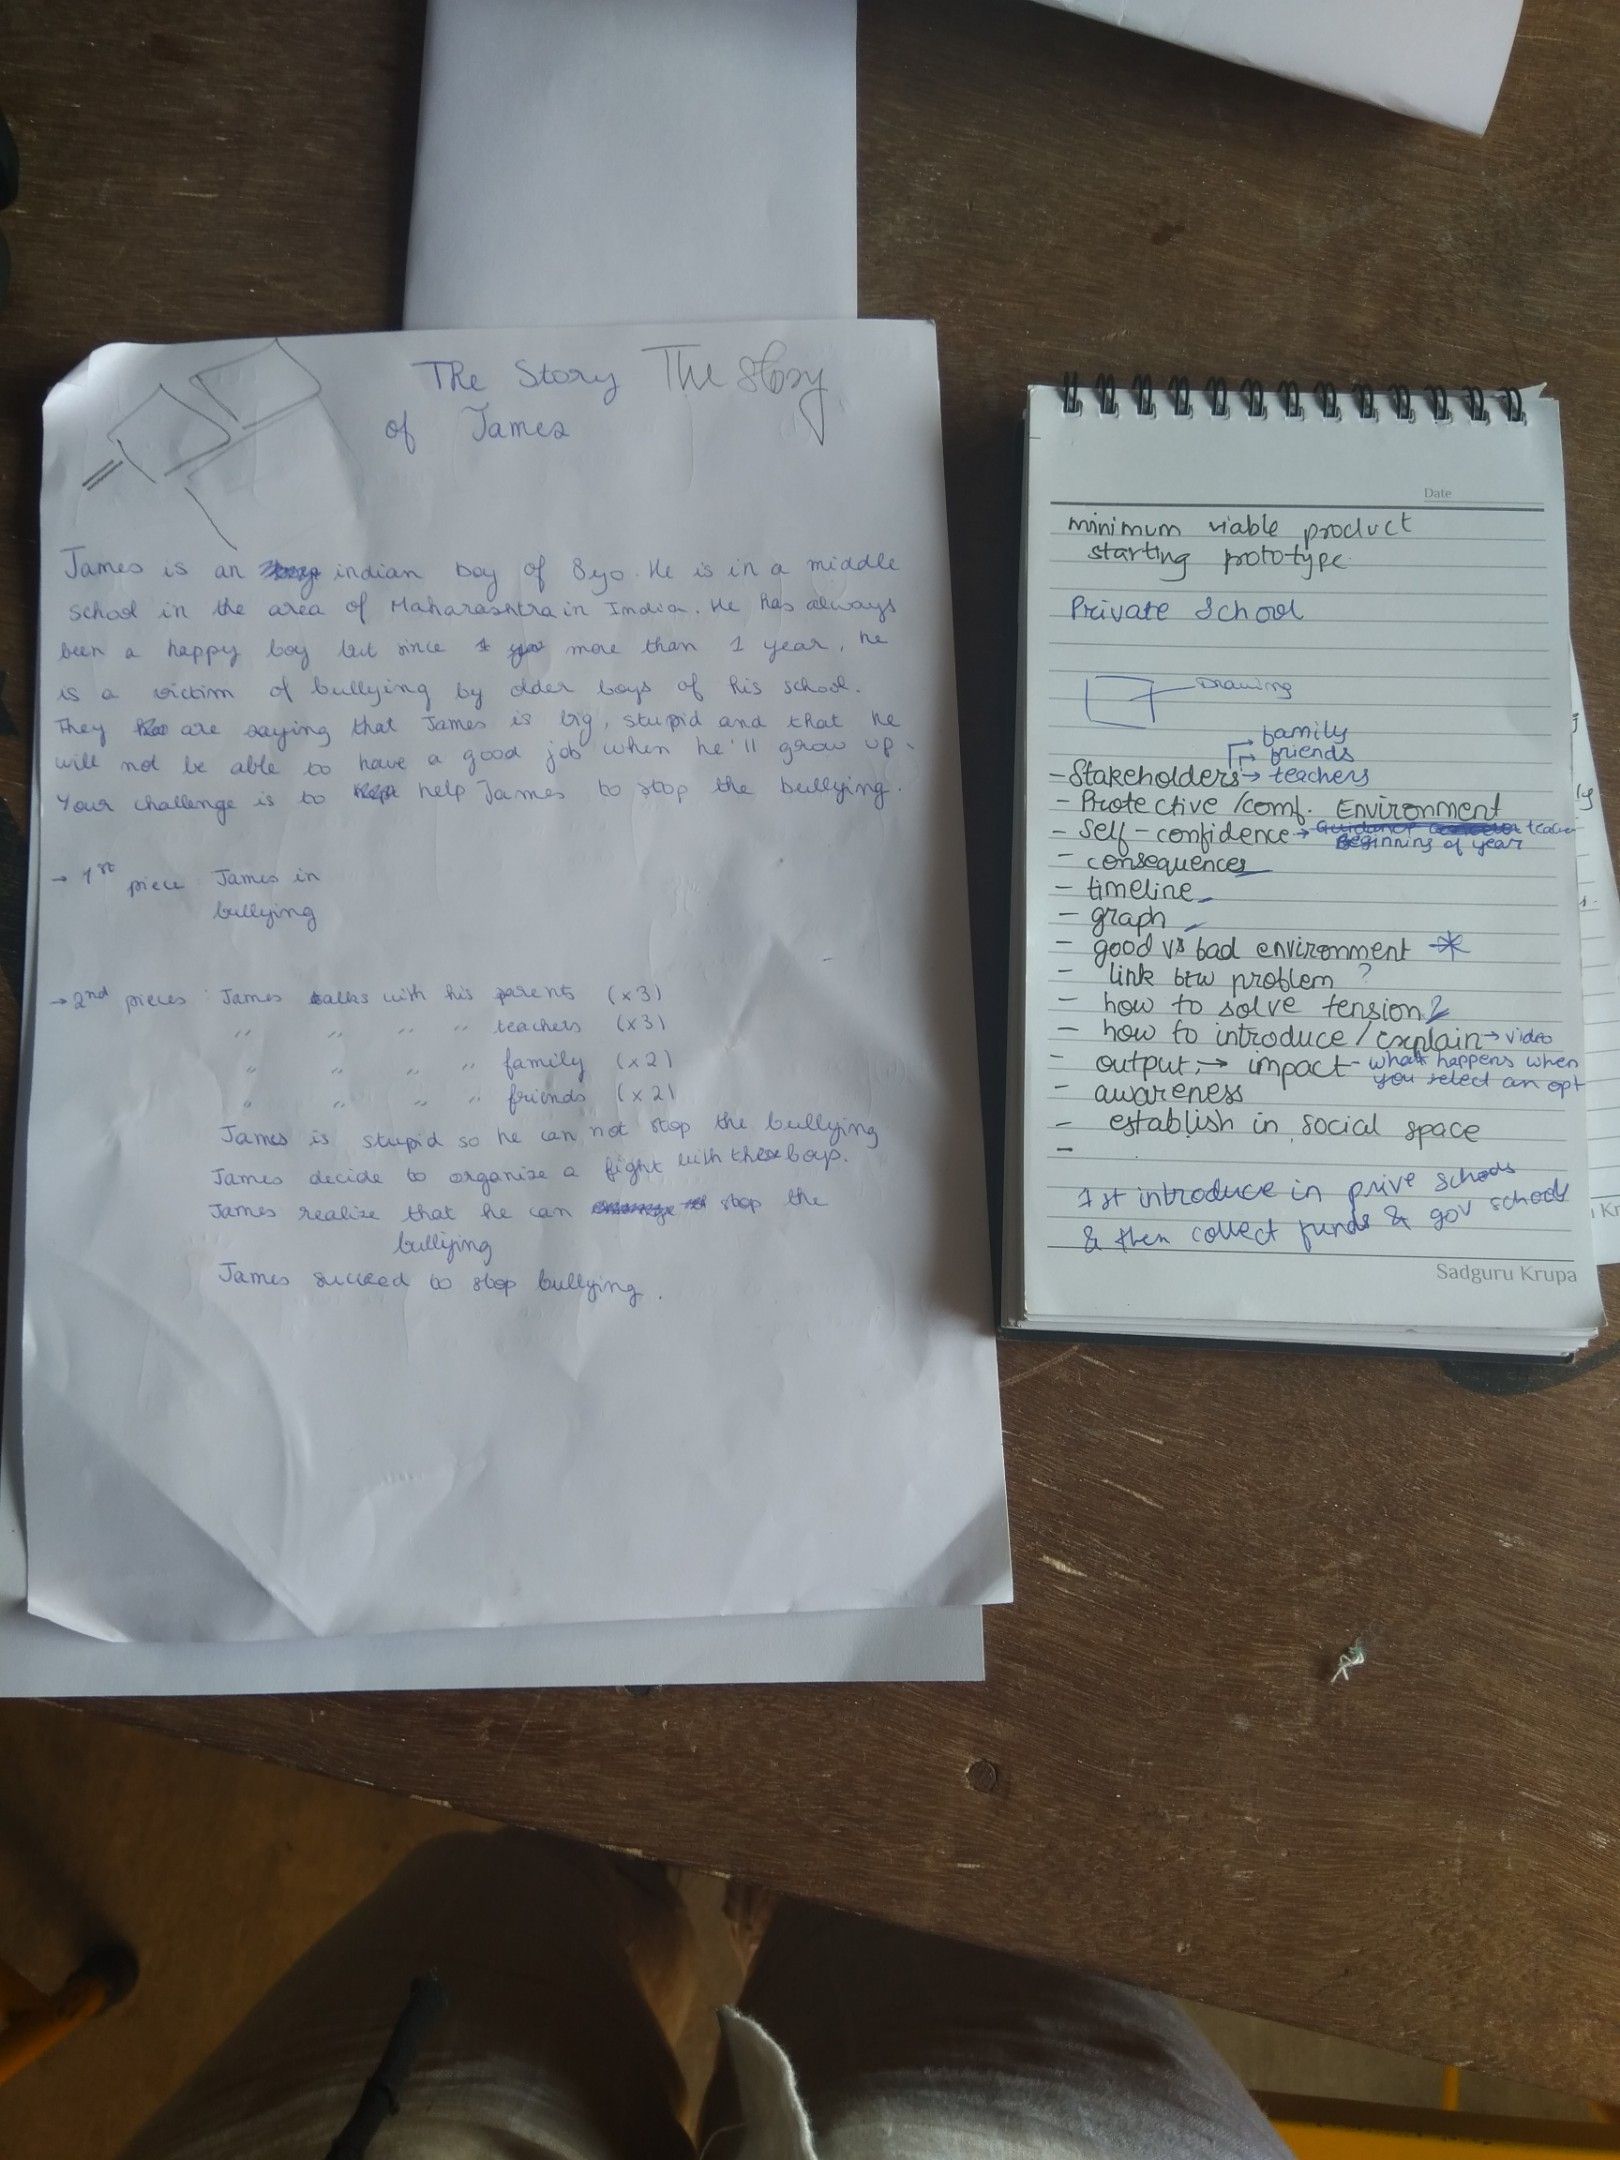 The Story The Story
of James
James is an indian boy of 8yo. He is in a middle
school in the area of Maharashtra in India. He has always
been a happy boy but since more than 1 year, he
is a victim of bullying by older boys of his school.
They are saying that James is big, stupid and that he
will not be able to have a good job when he'll grow up.
Your challenge is to help James to stop the bullying.
→ 1st piece : James in
bullying
→ 2nd pieces : James talks with his parents (x3)
" " " " teachers (x3)
" " " " family (x2)
" " " " friends (x2)
James is stupid so he can not stop the bullying
James decide to organize a fight with boys.
James realize that he can stop the
bullying
James succeed to stop bullying.
Date
minimum viable product
starting prototype.
Private School
Drawing
family
friends
- Stakeholders → teachers
- Protective / comf. Environment
- Self-confidence → Guidance
Beginning of year
- consequences
- timeline
- graph
- good vs bad environment *
- link btw problem ?
- how to solve tension ?
- how to introduce / explain → video
- output → impact - what happens when
you select an opt
- awareness
- establish in social space
-
1st introduce in prive schools
& then collect funds & gov schools
Sadguru Krupa